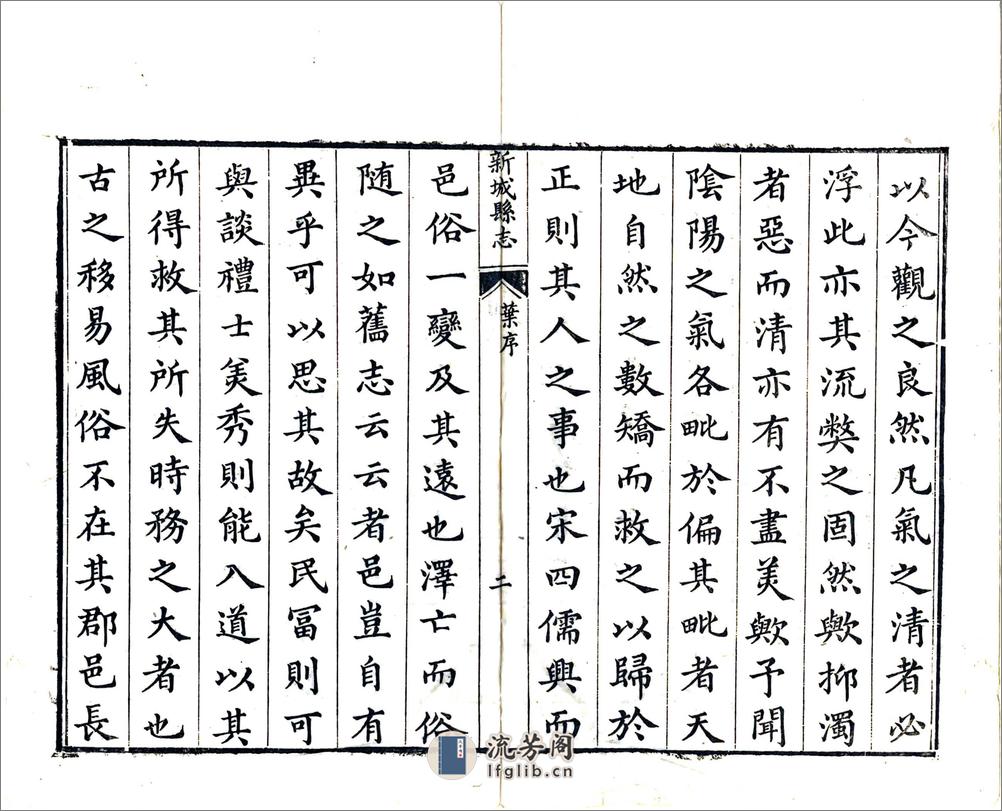 以今觀之良然凡氣之清者必
浮此亦其流弊之固然歟抑濁
者惡而清亦有不盡美歟予聞
陰陽之氣各毗於偏其毗者天
地自然之數矯而救之以歸於
正則其人之事也宋四儒興而
新城縣志
葉序
二
邑俗一變及其遠也澤亡而俗
随之如舊志云云者邑豈自有
異乎可以思其故矣民富則可
與談禮士美秀則能入道以其
所得救其所失時務之大者也
古之移易風俗不在其郡邑長
流芳阁
lfglib.cn